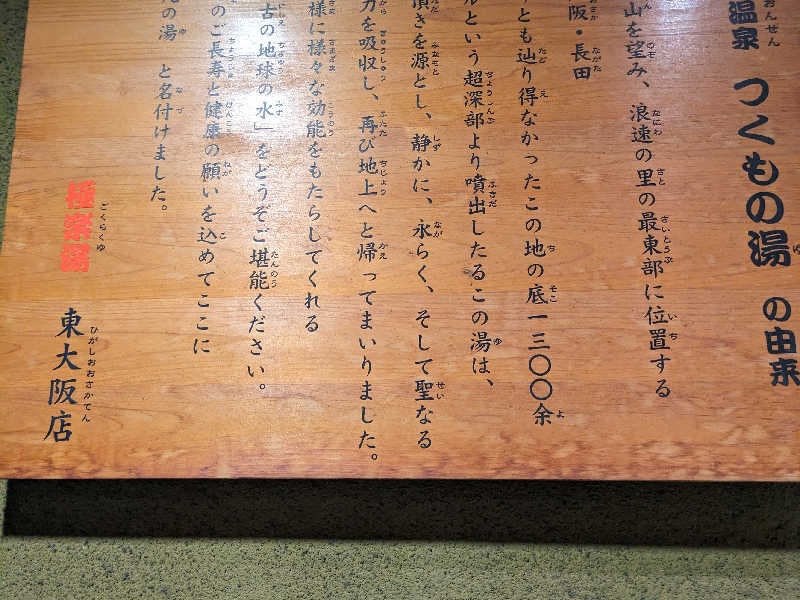 温泉 つくもの湯 の由来
山を望み、浪速の里の最東部に位置する
阪・長田
とも辿り得なかったこの地の底一三〇〇余
ルという超深部より噴出したるこの湯は、
頂きを源とし、静かに、永らく、そして聖なる
力を吸収し、再び地上へと帰ってまいりました。
様に様々な効能をもたらしてくれる
古の地球の水」をどうぞご堪能ください。
のご長寿と健康の願いを込めてここに
の湯 と名付けました。
極楽湯 東大阪店